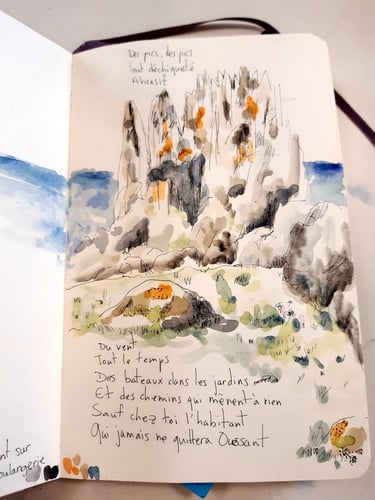 Des pics, des pics
Tout déchiqueté
Abrasif
Du vent
Tout le temps
Des bateaux dans les jardins
Et des chemins qui mènent à rien
Sauf chez toi l'habitant
Qui jamais ne quittera Ouessant
nt sur
oulangerie